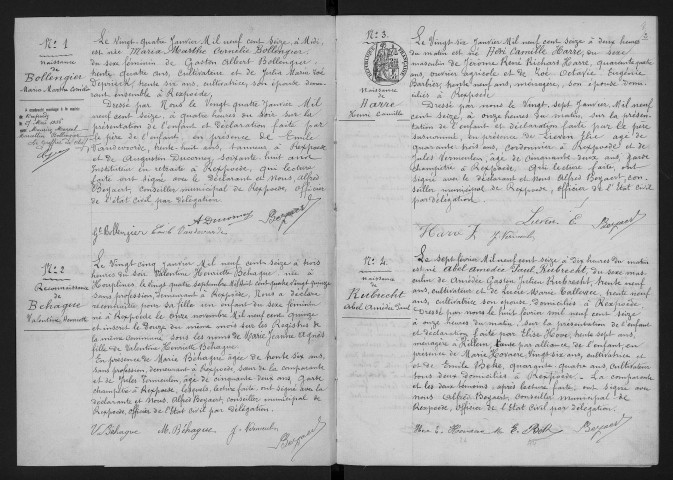 N° 1
Naissance
de
Bollengier
Maria Marthe Cornélie
Le Vingt quatre Janvier Mil neuf cent seize, à Midi,
est née Maria Marthe Cornélie Bollengier
du sexe féminin de Gaston Albert Bollengier,
trente quatre ans, cultivateur et de Julia Marie Zoé
trente six ans, son épouse demeu-
rant ensemble à Rexpoëde.
Dressé par Nous le Vingt quatre Janvier Mil
neuf cent seize, à quatre heures du soir sur la
présentation de l'enfant et déclaration faite par
le père de l'enfant, en présence de Emile
Vandevoorde, trente huit ans, tanneur à Rexpoë-
de et de Augustin Ducorney, soixante huit ans
Instituteur en retraite à Rexpoëde, qui lecture
faite ont signé avec le déclarant et Nous, Alfred
Boyaert, conseiller municipal de Rexpoëde, officier
de l'état civil par délégation.
A Ducorney
Gt Bollengier Emile Vandevoorde Boyaert
N° 2
Reconnaissance
de
Behague
Valentine Henriette
Le Vingt cinq Janvier Mil neuf cent seize à trois
heures du soir Valentine Henriette Behague née à
Houplines le vingt quatre septembre Mil huit cent quatre vingt quinze
sans profession, demeurant à Rexpoëde. Nous a déclaré
reconnaître pour sa fille un enfant du sexe féminin
né à Rexpoëde le onze novembre Mil neuf cent quinze
et inscrit le Douze du même mois sur les Registres de
la même commune sous les noms de Marie Jeanne Agnès
fille de Valentine Henriette Behague.
En présence de Marie Behague âgée de trente six ans,
sans profession, demeurant à Rexpoëde, sœur de la comparante
et de Jules Vermeulen, âgé de cinquante deux ans, garde
champêtre à Rexpoëde, lesquels, lecture faite, ont signé avec la
déclarante et Nous, Alfred Boyaert, conseiller municipal de
Rexpoëde, officier de l'Etat Civil par délégation.
V Behague M. Béhague J. Vermeul Boyaert
N° 3.
Naissance
de
Harre
Henri Camille
Le Vingt six Janvier Mil neuf cent seize à deux heures
du matin est né Henri Camille Harre, du sexe
masculin de Jérôme René Richart Harre, quarante quatre
ans, ouvrier agricole et de Zoé Octavie Eugénie
Barbier, trente neuf ans, ménagère, son épouse domici-
liés à Rexpoëde
Dressé par nous le Vingt sept Janvier Mil neuf
cent seize, à onze heures du matin, sur la présentation
de l'enfant et déclaration faite par le père
susnommé, en présence de Lievin Elie âgé de
quarante trois ans, cordonnier à Rexpoëde et de
Jules Vermeulen, âgé de cinquante deux ans, garde
champêtre à Rexpoëde. Qui lecture faite, ont
signé avec le déclarant et Nous Alfred Boyaert, con-
seiller municipal de Rexpoëde, officier de l'Etat Civil
par délégation.
Lievin E. Boyaert
Harre J. J. Vermeul
N° 4.
naissance
de
Rubrecht
Abel Amédée Paul
Le sept février Mil neuf cent seize à dix heures du matin
est né Abel Amédée Paul Rubrecht, du sexe mas-
culin de Amédée Gaston Julien Rubrecht, trente neuf
ans, cultivateur et de Lucie Marie Calloose, trente neuf
ans, cultivatrice son épouse domiciliés à Rexpoëde
Dressé par nous le huit février mil neuf cent seize
à onze heures du matin, sur la présentation de l'enfant
et déclaration faite par Elise Hove, trente sept ans,
ménagère à Killem, tante par alliance de l'enfant, en
présence de Marie Hovaere Vingt six ans, cultivatrice et
et de Emile Bothe, quarante quatre ans, cultivateur
tous deux domiciliés à Rexpoëde. La comparante
et les deux témoins, après lecture faite, ont signé avec
nous Alfred Boyaert, conseiller municipal de
Rexpoëde, officier de l'Etat Civil par délégation.
E. Both Boyaert